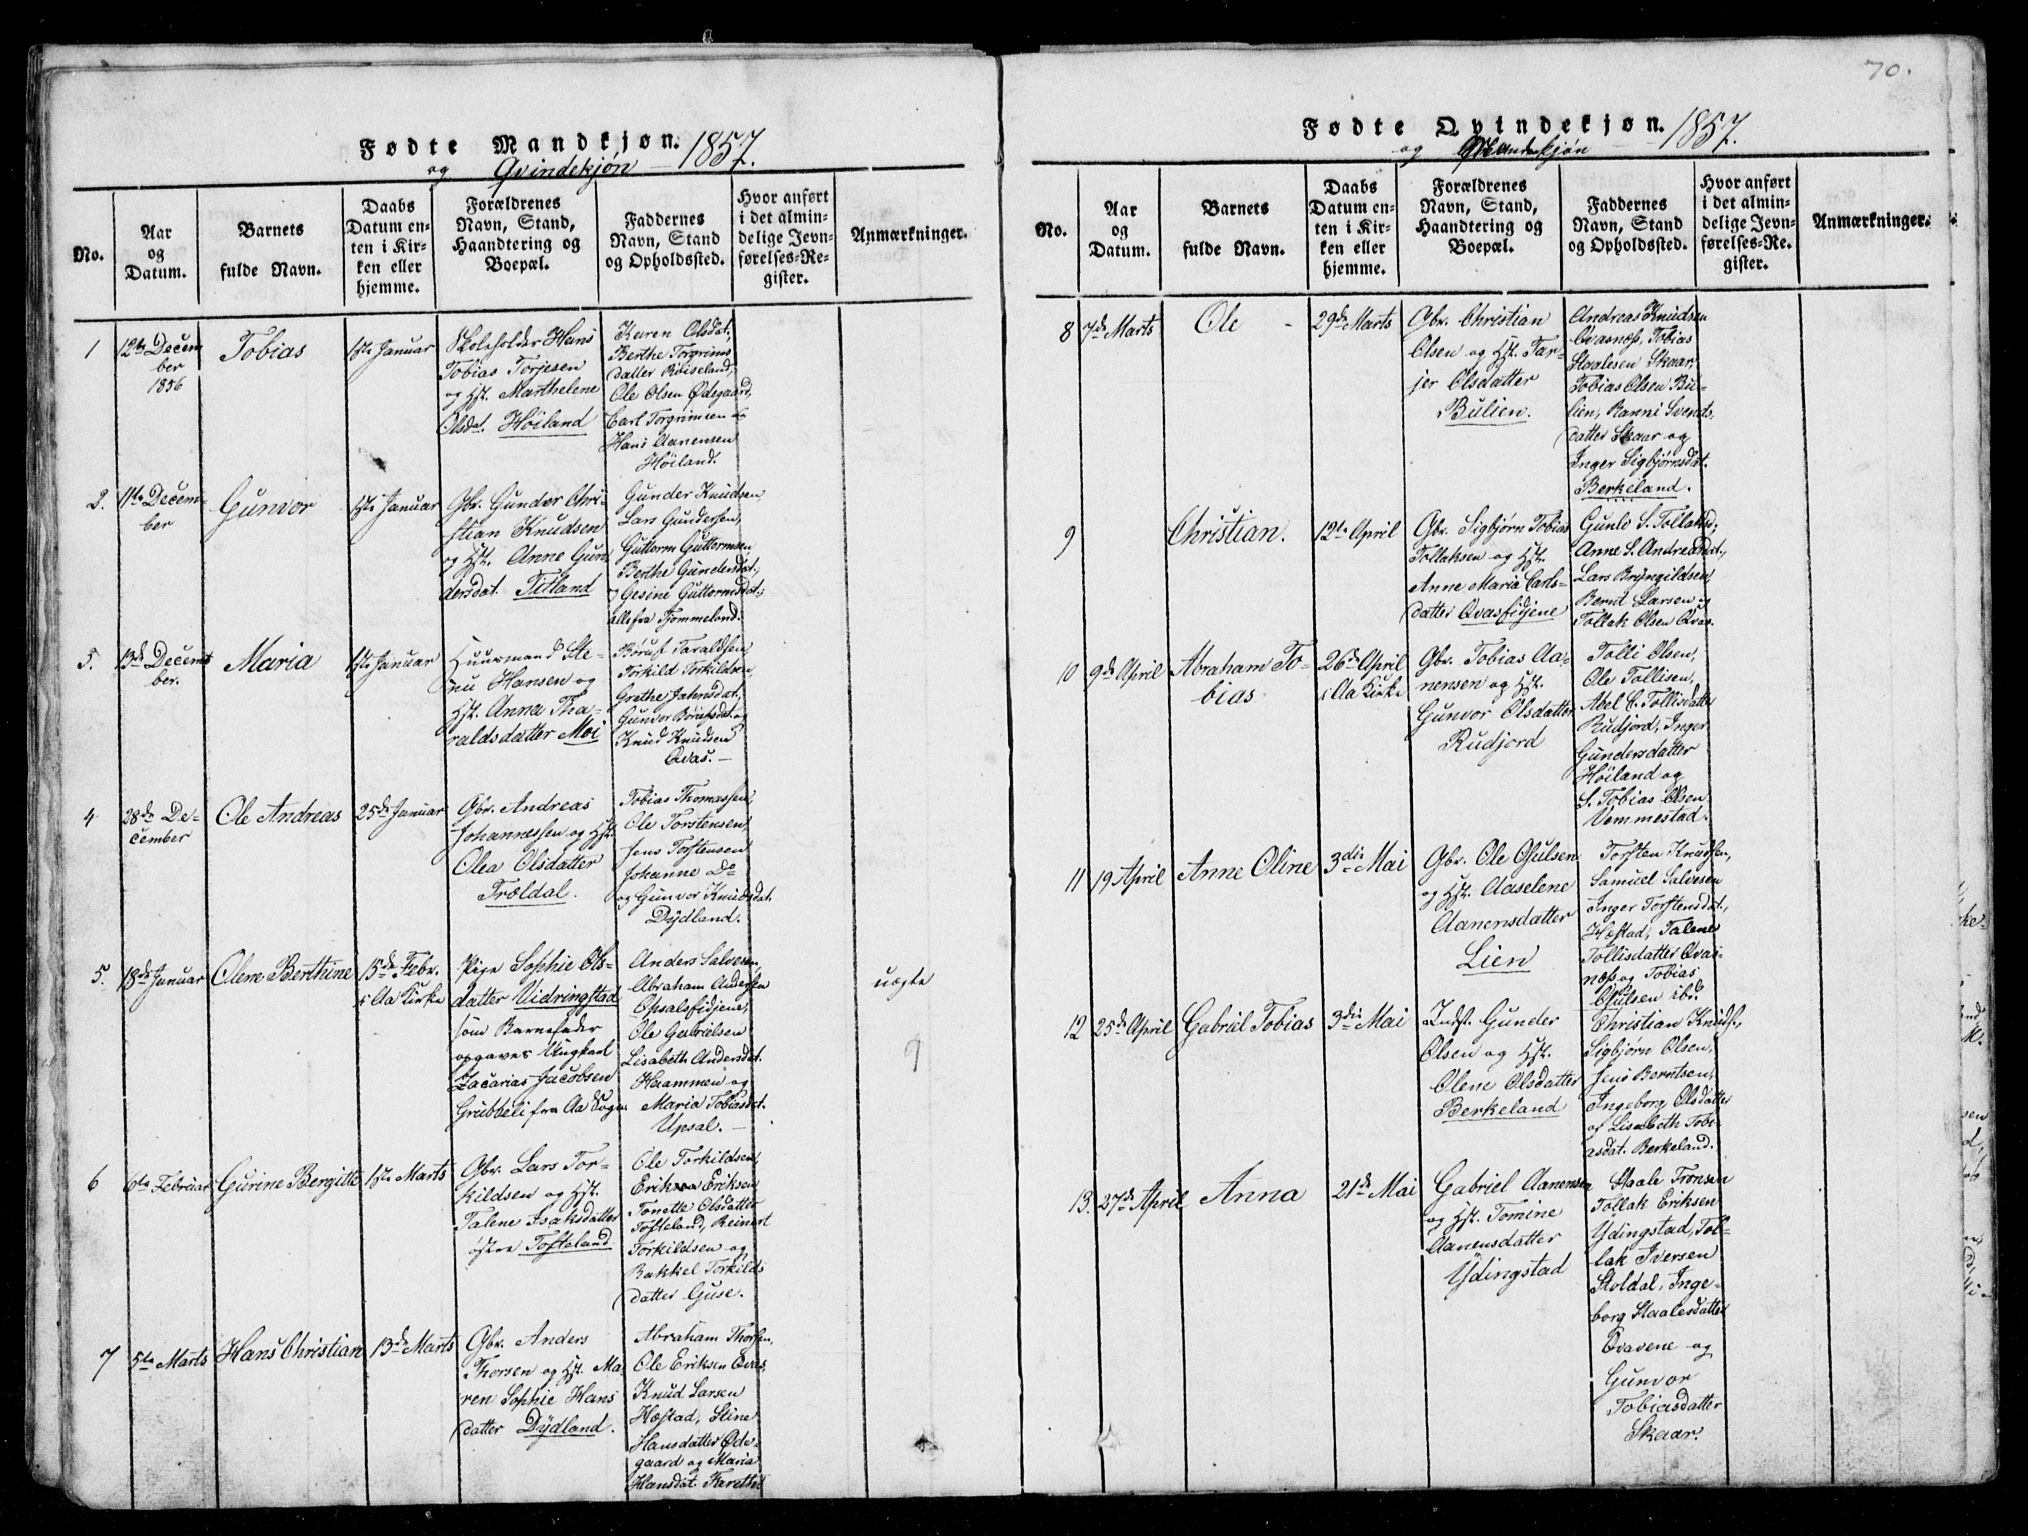 70.
Fødte Mandkjøn. 1857.
og Qvindekjøn
No.
Aar
og
Datum.
Barnets
fulde Navn.
Daabs
Datum en-
ten i Kir-
ken eller
hjemme.
Forældrenes
Navn, Stand,
Haandtering og
Boepæl.
Faddernes
Navn, Stand
og Opholdssted.
Hvor anført
i det almin-
delige Jevn-
førelses-Re-
gister.
Anmærkninger.
1
12te Decem
ber
1856
Tobias
1ste Januar
Skoleholder Hans
Tobias Torjesen
og Hst. Marthelene
Olsdt. Høiland
Karen Olsdat,
Berthe Torgrims
datter Röiseland,
Ole Olsen Ødegaard,
Carl Torgrimsen og
Hans Aanensen
Høiland.
2.
11te Decem-
ber
Gunvor
1ste Januar
Gbr. Gunder Chri-
stian Knudsen
og Hst. Anne Gun
dersdat. Fitland
Gunder Knudsen,
Lars Gundersen,
Guttorm Guttormsen
Berthe Gundersdat.,
Gesine Guttormsdat.,
alle fra Fjommeland.
3.
13de Decem
ber.
Maria
1ste Januar
Huusmand Ste-
nu Hansen og
Hst. Anna Tha-
raldsdatter Moi
Børuf Taraldsen,
Torkild Torkildsen,
Grethe Jahnsdat,
Gunvor Børufsdat. og
Knud Knudsen
Qvas. —
4
28de De-
cember
Ole Andreas
25de Januar
Gbr. Andreas
Johannessen og Hst.
Olea Olsdatter
Trældal.
Tobias Thomassen,
Ole Torstensen,
Jens Torstensen
Johanne Do
og Gunvor Knudsdat.
Dydland.
5.
18de Januar
Olene Berthine
15de Febr.
i Aa Kirke
Pige Sophie Ols-
datter Vidringstad
som Barnefader
opgaves Ungkarl
Zacarias Jacobsen
Grubbeli fra Aa Sogn
Anders Salvesen,
Abraham Andersen
Opsalsfidjene,
Ole Gabrielsen
Lisabeth Andersdat.
Haammen og
Maria Tobiasdat.
Upsal. —
uægte
6
6te Februar
Gurine Bergitte
1ste Marts
Gbr. Lars Tor-
kildsen og Hst.
Talene Isaksdatter
østre Tofteland
Ole Torkildsen,
Erik Eriksen
Tonette Olsdatter
Tofteland, Reinert
Torkildsen og
Rakkel Torkilds
datter Guse.
7
5te Marts
Hans Christian
13de Marts
Gbr. Anders
Thorsen og Hst. Ma-
ren Sophie Hans
datter Dydland.
Abraham Thorsen,
Ole Eriksen Qvas,
Knud Larsen
Hæstad, Stine
Hansdatter Øde-
gaard og Maria
Hansdat.
Fødte Qvindekjøn. 1857.
og Mandkjøn
No.
Aar
og
Datum.
Barnets
fulde Navn.
Daabs
Datum en-
ten i Kir-
ken eller
hjemme.
Forældrenes
Navn, Stand,
Haandtering og
Boepæl.
Faddernes
Navn, Stand
og Opholdssted.
Hvor anført
i det almin-
delige Jevn-
førelses-Re-
gister.
Anmærkninger.
8
7de Marts
Ole
29de Marts
Gbr. Christian
Olsen og Hst. Tar-
jer Olsdatter
Bulien.
Andreas Knudsen
Qvasnæs, Tobias
Staalesen Skaar,
Tobias Olsen Bu-
lien, Ranni Svends-
datter Skaar og
Inger Sigbjørnsdat.
Berkeland.
9
Christian.
12te April
Gbr. Sigbjørn Tobias
Tollaksen og Hst.
Anne Maria Carls-
datter Qvasfidjene
Gunlo S. Tollaksd.,
Anne S. Andreasdat.,
Lars Bryngildsen,
Bernt Larsen og
Tollak Olsen Qvas
10
9de April
Abraham To-
bias
26de April
i Aa Kirke
Gbr. Tobias Aa-
nensen og Hst.
Gunvor Olsdatter
Rudjord
Tolli Olsen,
Ole Tollisen,
Abel C. Tollisdatter
Rudjord, Inger
Gundersdatter
Høiland og
S. Tobias Olsen
Vemmestad.
11
19 April
Anne Oline
3die Mai
Gbr. Ole Osulsen
og Hst. Aaselene
Aanensdatter
Lien
Torsten Knudsen,
Samuel Salvesen
Inger Torstensdat.,
Hæstad, Talene
Tollisdatter Qvas-
næs og Tobias
Osulsen ibd.
12
25de April
Gabriel Tobias
3die Mai
Indst. Gunder
Olsen og Hst.
Olene Olsdatter
Berkeland
Christian Knuds.,
Sigbjørn Olsen,
Jens Berntsen,
Ingeborg Olsdatter
og Lisabeth Tobi-
asdat. Berkeland.
13.
27de April
Anna
21de Mai
Gabriel Aanensen
og Hst. Tomine
Aanensdatter
Ydingstad
Staale Tronsen
Tollak Eriksen
Ydingstad, Tol-
lak Iversen
Stoldal, Inge-
borg Staalesdatter
Qvavene og
Gunvor
Tobiasdatter
Skaar.